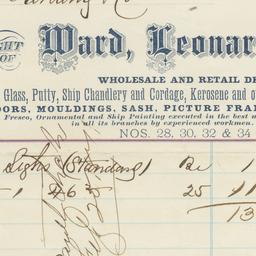 GHT
OF
Ward, Leonar
WHOLESALE AND RETAIL DE
Glass, Putty, Ship Chandlery and Cordage, Kerosene and o
OORS, MOULDINGS, SASH, PICTURE FRA
Fresco, Ornamental and Ship Painting executed in the best
in all its branches by experienced workmen.
NOS. 28, 30, 32 & 34
Lights (Standard)
25
13